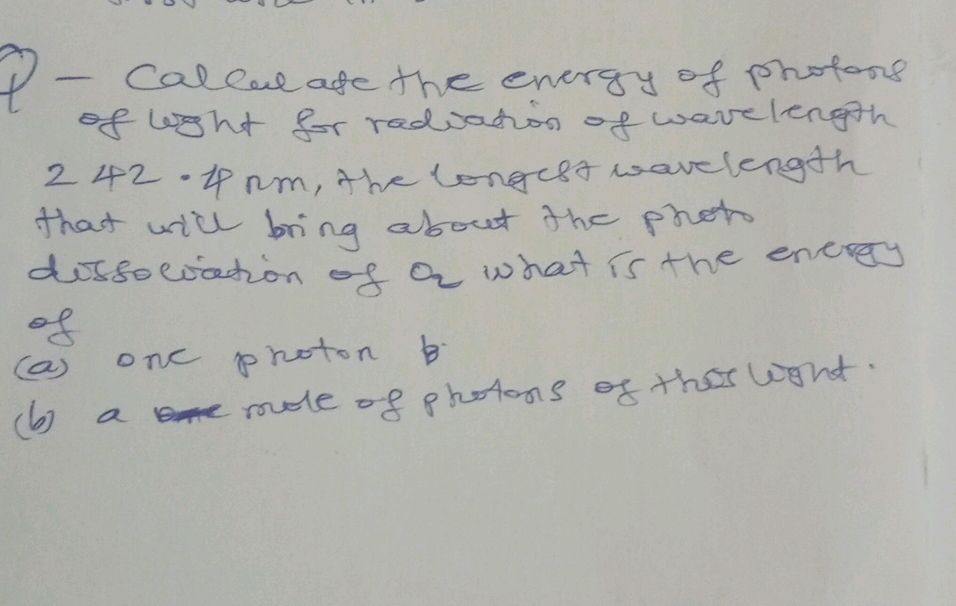 Q - Calculate the energy of photons
of light for radiation of wavelength
242.4 nm, the longest wavelength
that will bring about the photo
dissociation of O2 what is the energy
of
(a) one photon b.
(b) a mole of photons of this light.